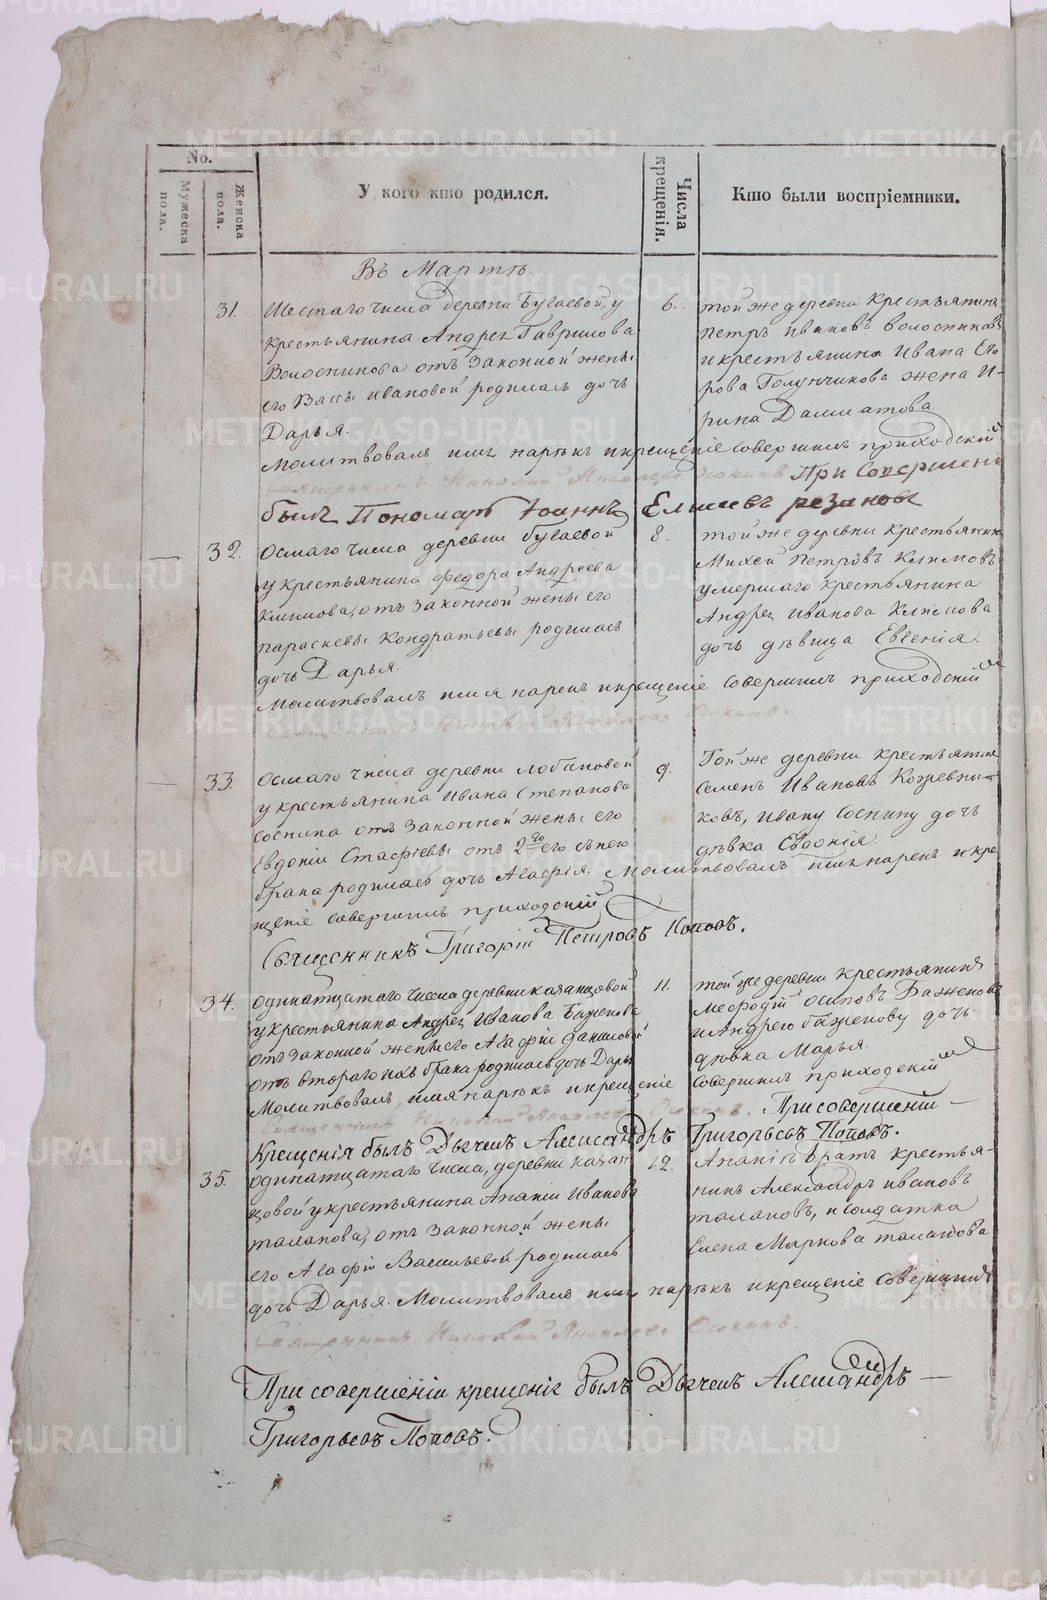 No.
Мужеска пола.
Женска пола.
У кого кто родился.
Числа крещенія.
Кто были воспріемники.
Въ Мартѣ.
31. Шестаго числа деревни Бугаевой, у
крестьянина Андрея Гаврилова
Волосникова отъ законной жены
его Вассы Ивановой родилась дочь
Дарья.
6. той же деревни крестьянинъ
Петръ Ивановъ Волосниковъ
и крестьянина Ивана Его-
рова Голунчикова жена И-
рина Далматова
Молитвовалъ имя нарекъ и крещеніе совершилъ приходскій
Священникъ Николай Яковлевъ Осокинъ При совершен
былъ Пономарь Іоаннъ Елисевъ резановъ
32. Осмаго числа деревни Бугаевой
у крестьянина Федора Андреева
Климова, отъ законной жены его
Параскевы Кондратьевы родилась
дочь Дарья.
8. той же деревни крестьянинъ
Михей Петровъ Климовъ
умершаго крестьянина
Андрея Иванова Климова
дочь дѣвица Евгенія.
Молитвовалъ имя нарекъ и крещеніе совершилъ приходскій
Священникъ Николай Яковлевъ Осокинъ.
33. Осмаго числа деревни Лобановой
у крестьянина Ивана Степанова
Соснина отъ законной жены его
Евдокіи отъ 2го его съ нею
брака родилась дочь Агафія.
9. Той же деревни крестьянинъ
Семенъ Ивановъ Кожевни-
ковъ, Ивану Соснину дочь
дѣвка Евдокія.
Молитвовалъ имя нарекъ и кре
щеніе совершилъ приходскій
Священникъ Григорій Петровъ Поповъ.
34. Одинатцатаго числа деревни казанцовой
у крестьянина Андрея Иванова Баженова
отъ законной жены его Агафіи Даниловой
отъ втораго ихъ брака родилась дочь Дарья
11. той же деревни крестьянинъ
Мефодій Осиповъ Баженовъ
и Андрею Баженову дочь
дѣвка Марья.
Молитвовалъ, имя нарекъ и крещеніе совершилъ приходскій
Священникъ Николай Яковлевъ Осокинъ. При совершеніи
Крещенія былъ Дьячекъ Александръ Григорьевъ Поповъ.
35. Одинатцатаго числа, деревни казан
цовой у крестьянина Ананіи Иванова
Талапова, отъ законной жены
его Агафіи Васильевой родилась
дочь Дарья.
12. Ананіи братъ крестья-
нинъ Александръ Ивановъ
Талаповъ, и солдатка
Елена Маркова Талапова
Молитвовалъ имя нарекъ и крещеніе совершилъ
Священникъ Николай Яковлевъ Осокинъ.
При совершеніи крещеніе былъ Дьячекъ Александръ
Григорьевъ Поповъ.
METRIKI.GASO-URAL.RU